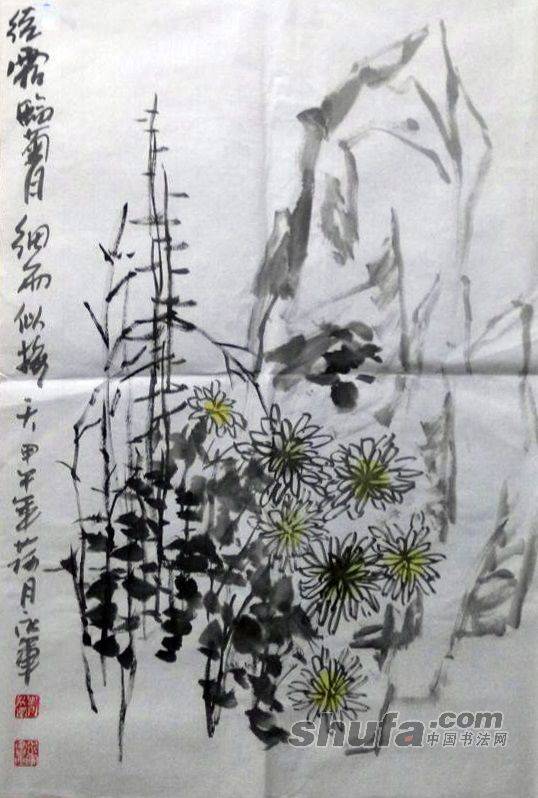 经霜菊月细雨似梅天甲午年荷月军
shufa.com
中国书法网